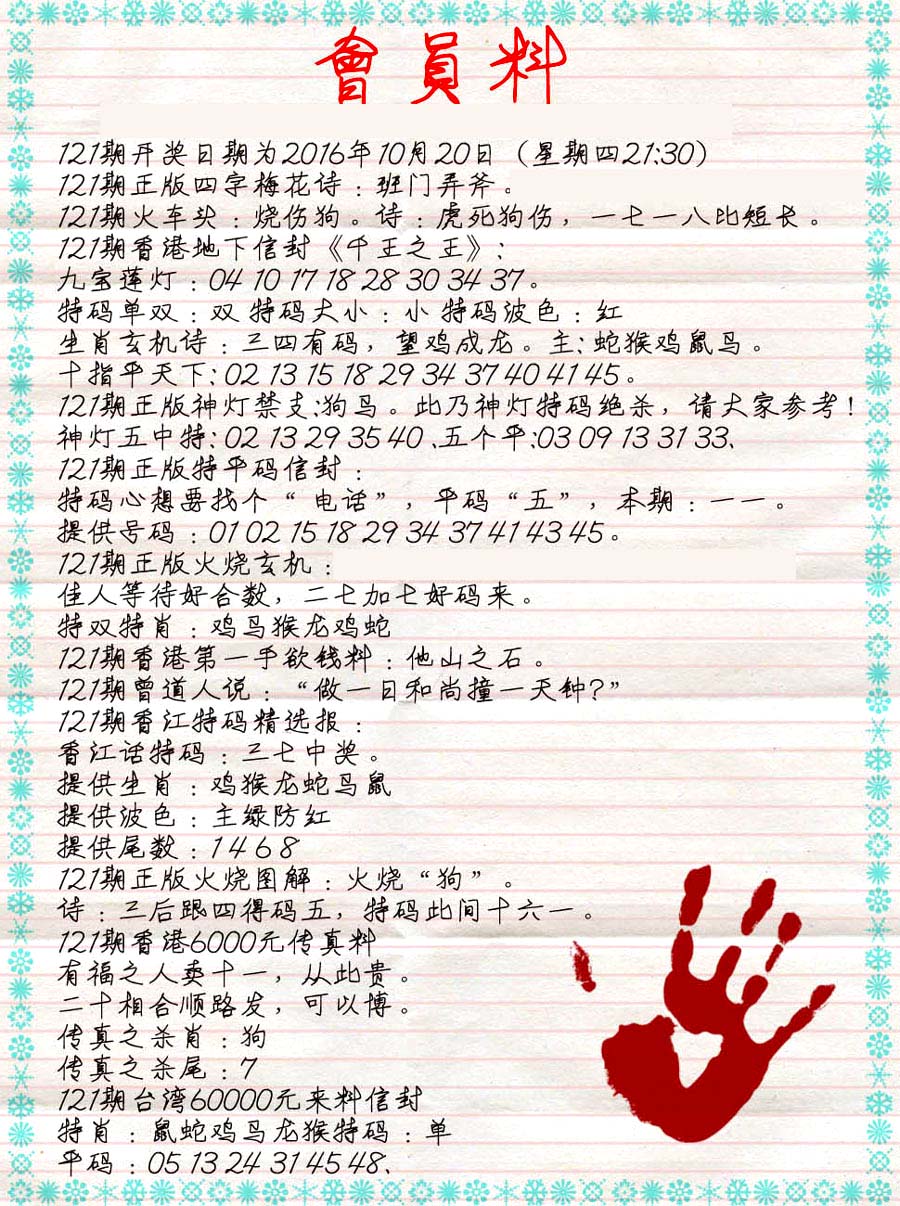 會員料
121期开奖日期为2016年10月20日（星期四21:30）
121期正版四字梅花诗：班门弄斧。
121期火车头：烧伤狗。诗：虎死狗伤，一七一八比短长。
121期香港地下信封《千王之王》：
九宝莲灯：04 10 17 18 28 30 34 37。
特码单双：双 特码大小：小 特码波色：红
生肖玄机诗：三四有码，望鸡成龙。主：蛇猴鸡鼠鸟。
十指平天下：02 13 15 18 29 34 37 40 41 45。
121期正版神灯禁支：狗鸟。此乃神灯特码绝杀，请大家参考！
神灯五中特：02 13 29 35 40、五个平：03 09 13 31 33、
121期正版特平码信封：
特码心想要找个“电话”，平码“五”，本期：一一。
提供号码：01 02 15 18 29 34 37 41 43 45。
121期正版火烧玄机：
佳人等待好合数，二七加七好码来。
特双特肖：鸡鸟猴龙鸡蛇
121期香港第一手欲钱料：他山之石。
121期曾道人说：“做一日和尚撞一天钟？”
121期香江特码精选报：
香江话特码：三七中奖。
提供生肖：鸡猴龙蛇鸟鼠
提供波色：主绿防红
提供尾数：1 4 6 8
121期正版火烧图解：火烧“狗”。
诗：三后跟四得码五，特码此间十六一。
121期香港6000元传真料
有福之人卖十一，从此贵。
二十相合顺路发，可以博。
传真之杀肖：狗
传真之杀尾：7
121期台湾60000元来料信封
特肖：鼠蛇鸡鸟龙猴特码：单
平码：05 13 24 31 45 48、